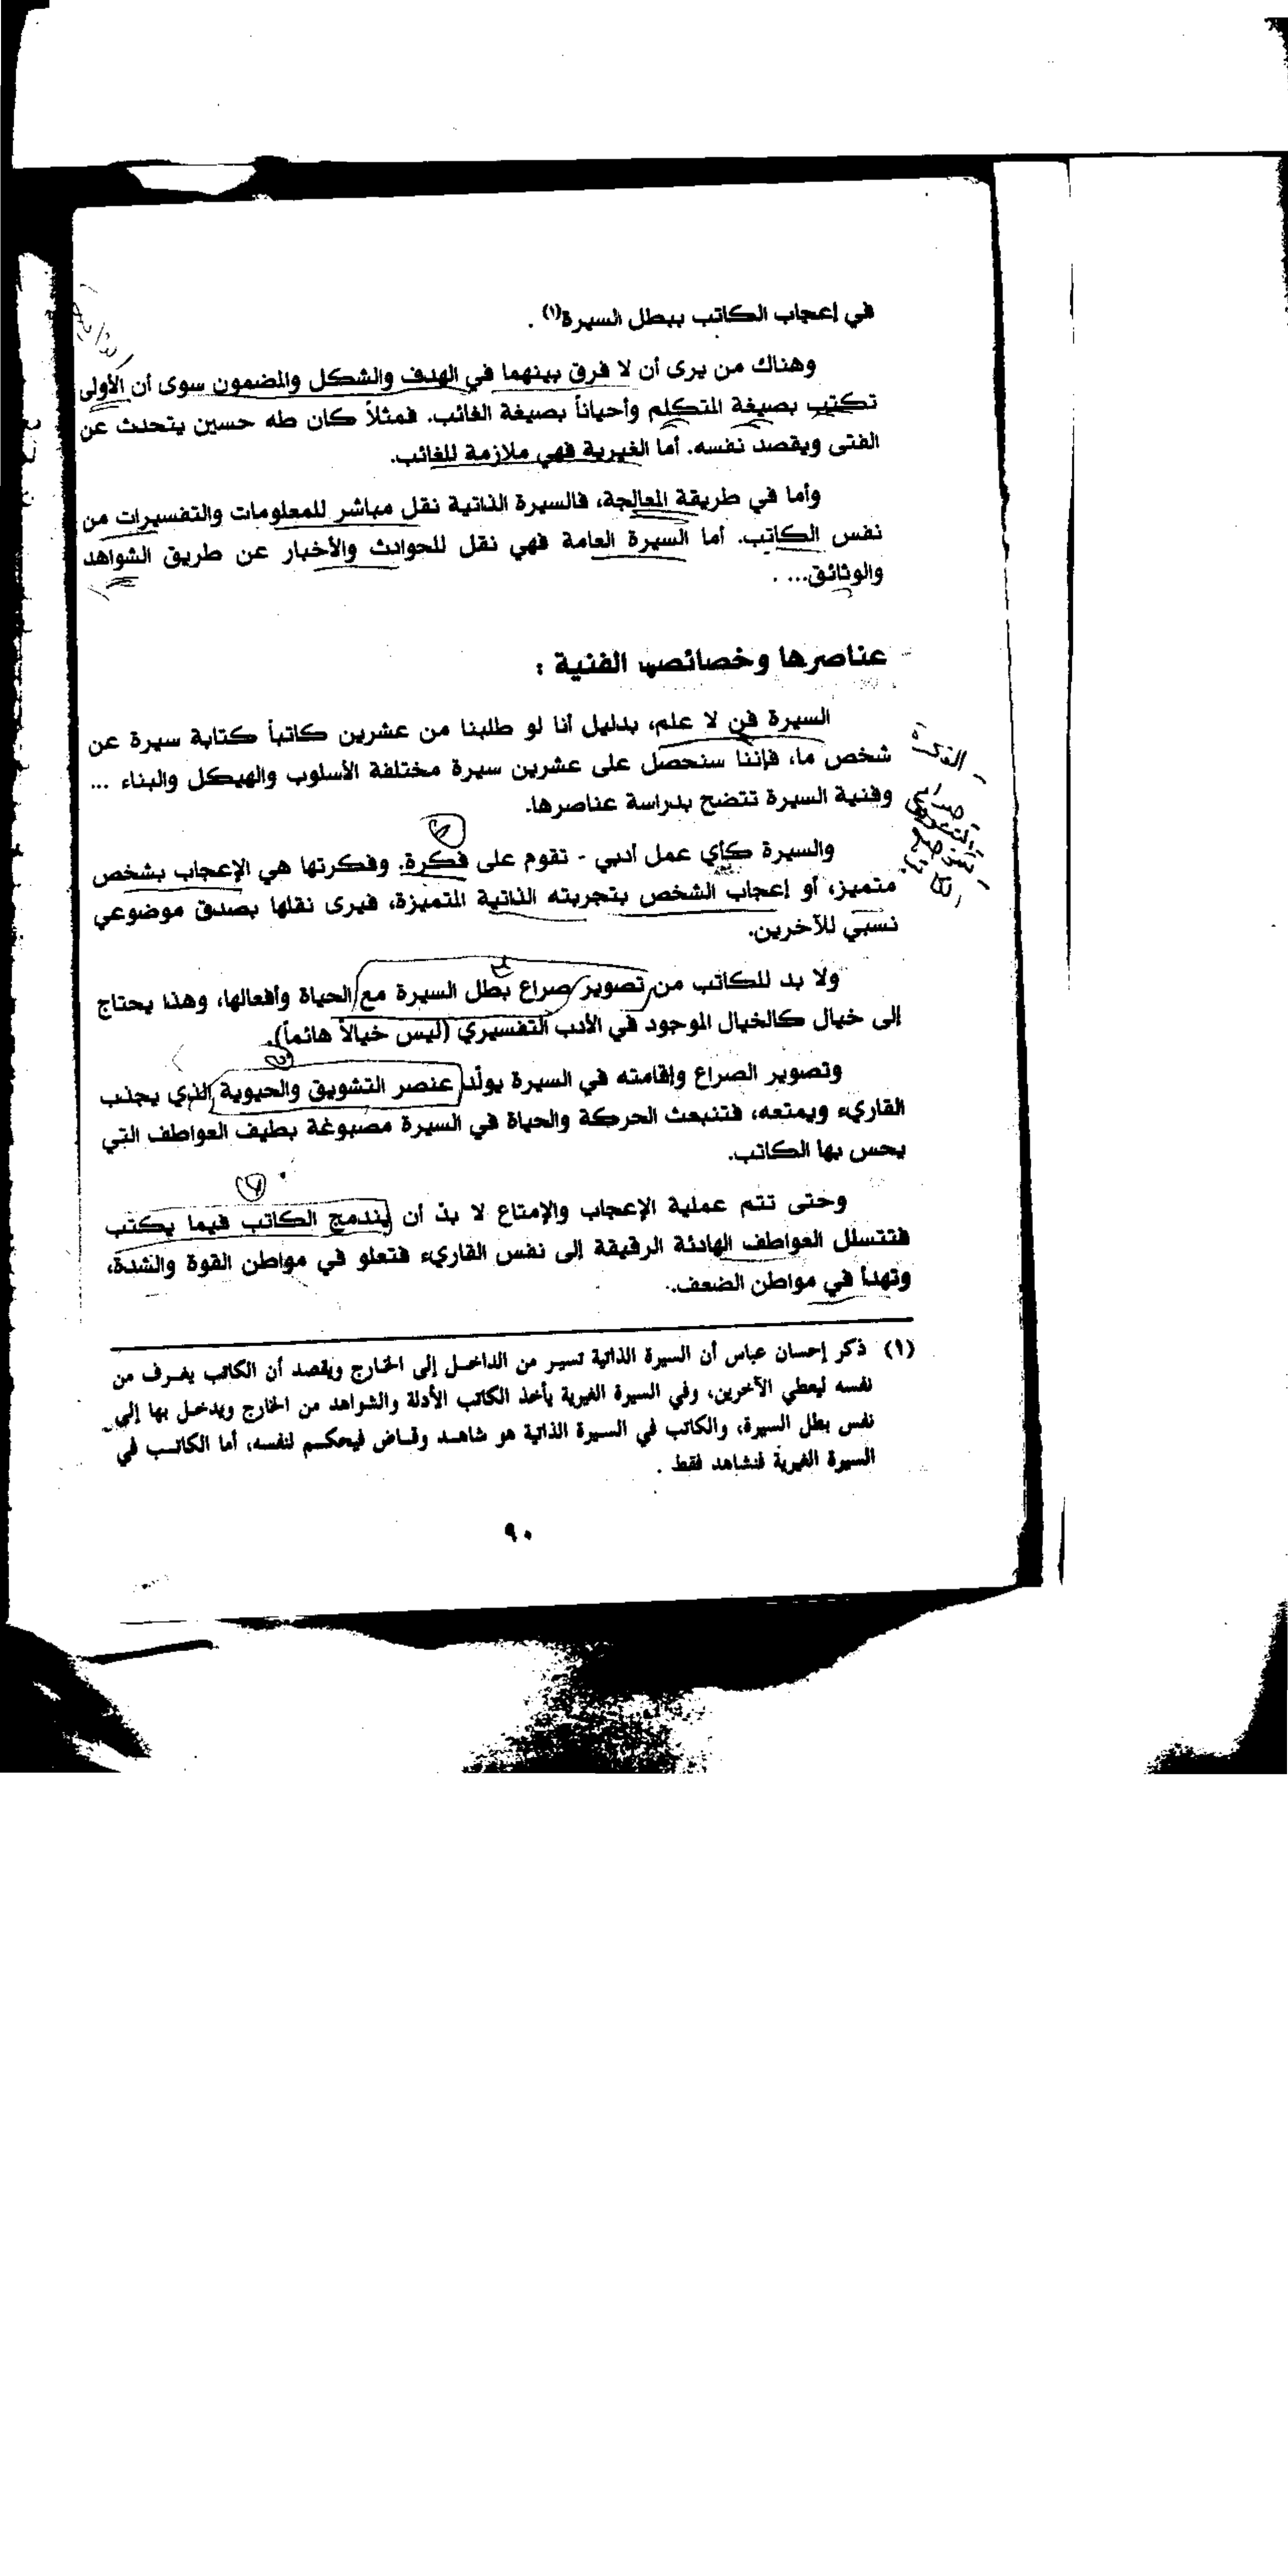 في إعجاب الكاتب ببطل السيرة(١) .
وهناك من يرى أن لا فرق بينهما في الهدف والشكل والمضمون سوى أن الأولى
تكتب بصيغة المتكلم وأحياناً بصيغة الغائب. فمثلاً كان طه حسين يتحدث عن
الفتى ويقصد نفسه. أما الغيرية فهي ملازمة للغائب.
وأما في طريقة المعالجة، فالسيرة الذاتية نقل مباشر للمعلومات والتفسيرات من
نفس الكاتب. أما السيرة العامة فهي نقل للحوادث والأخبار عن طريق الشواهد
والوثائق... .
عناصرها وخصائصها الفنية :
السيرة فن لا علم، بدليل أنا لو طلبنا من عشرين كاتباً كتابة سيرة عن
شخص ما، فإننا سنحصل على عشرين سيرة مختلفة الأسلوب والهيكل والبناء ...
وفنية السيرة تتضح بدراسة عناصرها.
- الفكرة
- صراع
- التشويق
الكاتب
والسيرة كأي عمل أدبي - تقوم على فكرة. وفكرتها هي الإعجاب بشخص
متميز، أو إعجاب الشخص بتجربته الذاتية المتميزة، فيرى نقلها بصدق موضوعي
نسبي للآخرين.
ولا بد للكاتب من تصوير صراع بطل السيرة مع الحياة وأفعالها، وهذا يحتاج
إلى خيال كالخيال الموجود في الأدب التفسيري (ليس خيالاً هائماً).
وتصوير الصراع وإقامته في السيرة يولّد عنصر التشويق والحيوية الذي يجذب
القاريء ويمتعه، فتنبعث الحركة والحياة في السيرة مصبوغة بطيف العواطف التي
يحس بها الكاتب.
وحتى تتم عملية الإعجاب والإمتاع لا بدّ أن يندمج الكاتب فيما يكتب
فتتسلل العواطف الهادئة الرقيقة إلى نفس القاريء فتعلو في مواطن القوة والشدة،
وتهدأ في مواطن الضعف.
(١) ذكر إحسان عباس أن السيرة الذاتية تسير من الداخل إلى الخارج ويقصد أن الكاتب يغرف من
نفسه ليعطي الآخرين، وفي السيرة الغيرية يأخذ الكاتب الأدلة والشواهد من الخارج ويدخل بها إلى
نفس بطل السيرة، والكاتب في السيرة الذاتية هو شاهد وقاض فيحكم لنفسه، أما الكاتب في
السيرة الغيرية فشاهد فقط .
٩٠